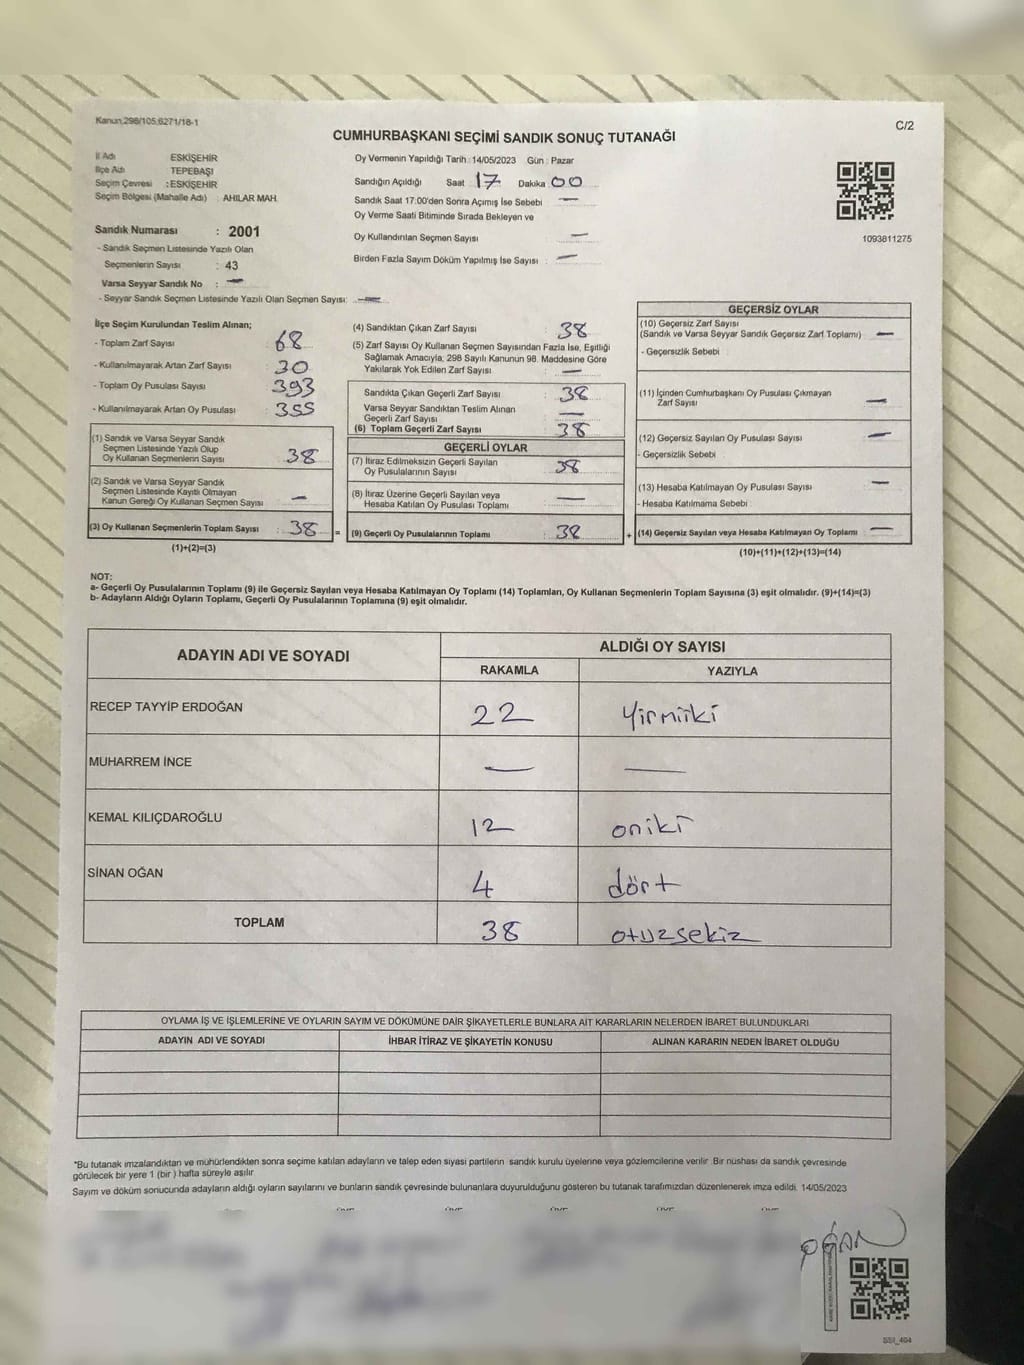 Kanun,298/105;6271/18-1
C/2
CUMHURBAŞKANI SEÇİMİ SANDIK SONUÇ TUTANAĞI
İl Adı ESKİŞEHİR
İlçe Adı TEPEBAŞI
Seçim Çevresi : ESKİŞEHİR
Seçim Bölgesi (Mahalle Adı) : AHILAR MAH.
Sandık Numarası : 2001
- Sandık Seçmen Listesinde Yazılı Olan
Seçmenlerin Sayısı : 43
Varsa Seyyar Sandık No : —
- Seyyar Sandık Seçmen Listesinde Yazılı Olan Seçmen Sayısı: —
Oy Vermenin Yapıldığı Tarih : 14/05/2023 Gün : Pazar
Sandığın Açıldığı Saat 17 Dakika 00
Sandık Saat 17:00'den Sonra Açımış İse Sebebi —
Oy Verme Saati Bitiminde Sırada Bekleyen ve
Oy Kullandırılan Seçmen Sayısı —
Birden Fazla Sayım Döküm Yapılmış İse Sayısı : —
1093811275
İlçe Seçim Kurulundan Teslim Alınan;
- Toplam Zarf Sayısı : 68
- Kullanılmayarak Artan Zarf Sayısı : 30
- Toplam Oy Pusulası Sayısı : 393
- Kullanılmayarak Artan Oy Pusulası : 355
(1) Sandık ve Varsa Seyyar Sandık
Seçmen Listesinde Yazılı Olup
Oy Kullanan Seçmenlerin Sayısı : 38
(2) Sandık ve Varsa Seyyar Sandık
Seçmen Listesinde Kayıtlı Olmayan
Kanun Gereği Oy Kullanan Seçmen Sayısı —
(3) Oy Kullanan Seçmenlerin Toplam Sayısı : 38 =
(1)+(2)=(3)
(4) Sandıktan Çıkan Zarf Sayısı : 38
(5) Zarf Sayısı Oy Kullanan Seçmen Sayısından Fazla İse, Eşitliği
Sağlamak Amacıyla; 298 Sayılı Kanunun 98. Maddesine Göre
Yakılarak Yok Edilen Zarf Sayısı : —
Sandıkta Çıkan Geçerli Zarf Sayısı : 38
Varsa Seyyar Sandıktan Teslim Alınan
Geçerli Zarf Sayısı : —
(6) Toplam Geçerli Zarf Sayısı : 38
GEÇERLİ OYLAR
(7) İtiraz Edilmeksizin Geçerli Sayılan
Oy Pusulalarının Sayısı : 38
(8) İtiraz Üzerine Geçerli Sayılan veya
Hesaba Katılan Oy Pusulası Toplamı : —
(9) Geçerli Oy Pusulalarının Toplamı : 38 +
GEÇERSİZ OYLAR
(10) Geçersiz Zarf Sayısı
(Sandık ve Varsa Seyyar Sandık Geçersiz Zarf Toplamı) —
- Geçersizlik Sebebi :
(11) İçinden Cumhurbaşkanı Oy Pusulası Çıkmayan
Zarf Sayısı —
(12) Geçersiz Sayılan Oy Pusulası Sayısı —
- Geçersizlik Sebebi
(13) Hesaba Katılmayan Oy Pusulası Sayısı —
- Hesaba Katılmama Sebebi
(14) Geçersiz Sayılan veya Hesaba Katılmayan Oy Toplamı —
(10)+(11)+(12)+(13)=(14)
NOT:
a- Geçerli Oy Pusulalarının Toplamı (9) ile Geçersiz Sayılan veya Hesaba Katılmayan Oy Toplamı (14) Toplamları, Oy Kullanan Seçmenlerin Toplam Sayısına (3) eşit olmalıdır. (9)+(14)=(3)
b- Adayların Aldığı Oyların Toplamı, Geçerli Oy Pusulalarının Toplamına (9) eşit olmalıdır.
ADAYIN ADI VE SOYADI ALDIĞI OY SAYISI
RAKAMLA YAZIYLA
RECEP TAYYİP ERDOĞAN 22 Yirmiiki
MUHARREM İNCE — —
KEMAL KILIÇDAROĞLU 12 oniki
SİNAN OĞAN 4 dört
TOPLAM 38 otuzsekiz
OYLAMA İŞ VE İŞLEMLERİNE VE OYLARIN SAYIM VE DÖKÜMÜNE DAİR ŞİKAYETLERLE BUNLARA AİT KARARLARIN NELERDEN İBARET BULUNDUKLARI
ADAYIN ADI VE SOYADI İHBAR İTİRAZ VE ŞİKAYETİN KONUSU ALINAN KARARIN NEDEN İBARET OLDUĞU
*Bu tutanak imzalandıktan ve mühürlendikten sonra seçime katılan adayların ve talep eden siyasi partilerin sandık kurulu üyelerine veya gözlemcilerine verilir. Bir nüshası da sandık çevresinde
görülecek bir yere 1 (bir ) hafta süreyle asılır.
Sayım ve döküm sonucunda adayların aldığı oyların sayılarını ve bunların sandık çevresinde bulunanlara duyurulduğunu gösteren bu tutanak tarafımızdan düzenlenerek imza edildi. 14/05/2023
OĞAN
SSI_404